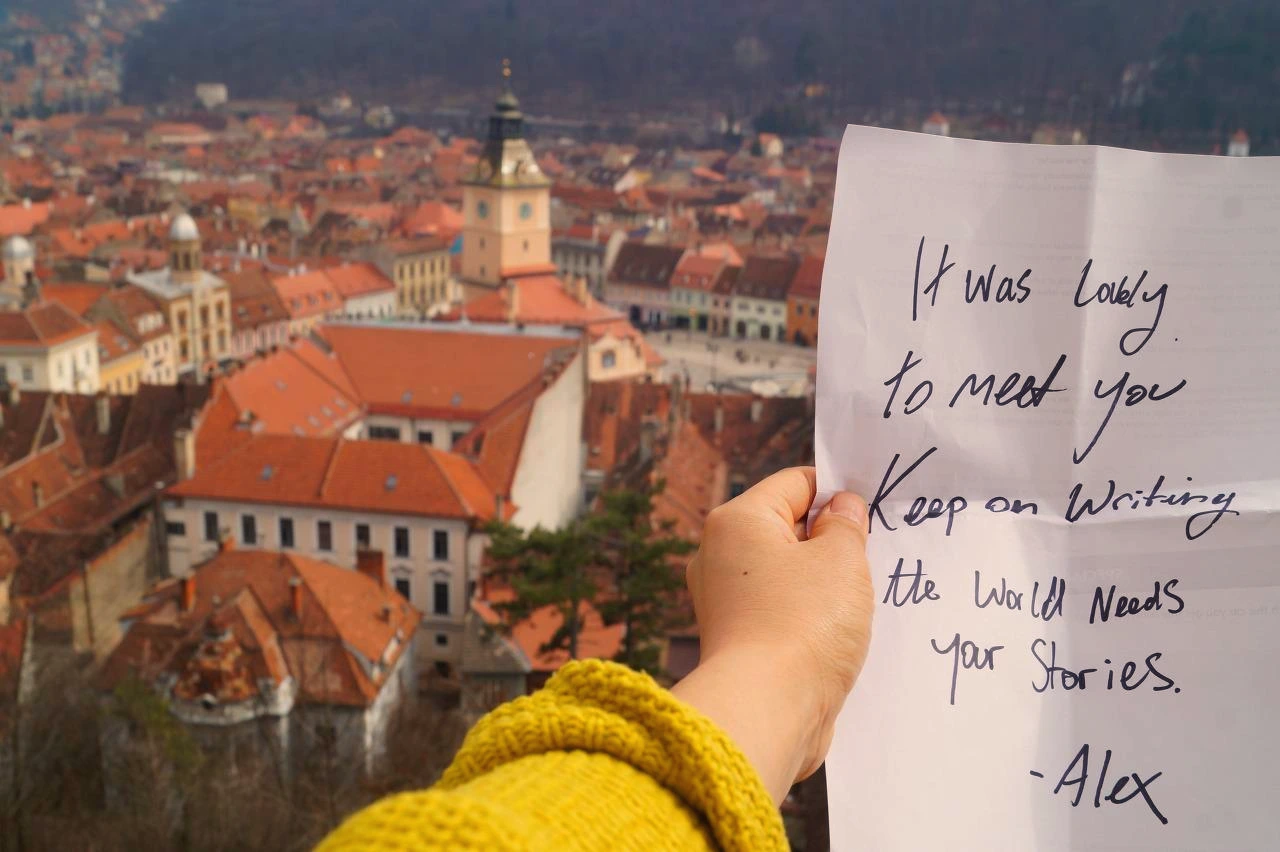 It was lovely
to meet you
Keep on writing
the World Needs
your Stories.
-Alex